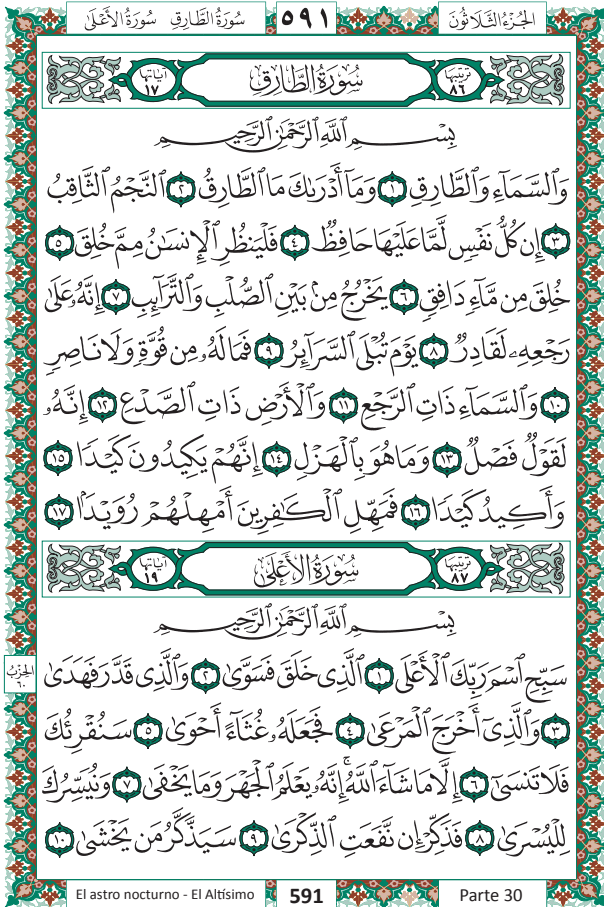 الجُزْءُ الثَّلَاثُونَ ٥٩١ سُورَةُ الطَّارِقِ سُورَةُ الأَعْلَىٰ
تَرْتِيبُهَا ٨٦ سُورَةُ الطَّارِقِ آيَاتُهَا ١٧
بِسْمِ ٱللَّهِ ٱلرَّحْمَٰنِ ٱلرَّحِيمِ
وَٱلسَّمَآءِ وَٱلطَّارِقِ ١ وَمَآ أَدْرَىٰكَ مَا ٱلطَّارِقُ ٢ ٱلنَّجْمُ ٱلثَّاقِبُ
٣ إِن كُلُّ نَفْسٍ لَّمَّا عَلَيْهَا حَافِظٌ ٤ فَلْيَنظُرِ ٱلْإِنسَٰنُ مِمَّ خُلِقَ ٥
خُلِقَ مِن مَّآءٍ دَافِقٍ ٦ يَخْرُجُ مِنۢ بَيْنِ ٱلصُّلْبِ وَٱلتَّرَآئِبِ ٧ إِنَّهُۥ عَلَىٰ
رَجْعِهِۦ لَقَادِرٌ ٨ يَوْمَ تُبْلَى ٱلسَّرَآئِرُ ٩ فَمَا لَهُۥ مِن قُوَّةٍ وَلَا نَاصِرٍ
١٠ وَٱلسَّمَآءِ ذَاتِ ٱلرَّجْعِ ١١ وَٱلْأَرْضِ ذَاتِ ٱلصَّدْعِ ١٢ إِنَّهُۥ
لَقَوْلٌ فَصْلٌ ١٣ وَمَا هُوَ بِٱلْهَزْلِ ١٤ إِنَّهُمْ يَكِيدُونَ كَيْدًا ١٥
وَأَكِيدُ كَيْدًا ١٦ فَمَهِّلِ ٱلْكَٰفِرِينَ أَمْهِلْهُمْ رُوَيْدًۢا ١٧
تَرْتِيبُهَا ٨٧ سُورَةُ الأَعْلَىٰ آيَاتُهَا ١٩
بِسْمِ ٱللَّهِ ٱلرَّحْمَٰنِ ٱلرَّحِيمِ
سَبِّحِ ٱسْمَ رَبِّكَ ٱلْأَعْلَى ١ ٱلَّذِى خَلَقَ فَسَوَّىٰ ٢ وَٱلَّذِى قَدَّرَ فَهَدَىٰ
الحِزْبُ ٦٠
٣ وَٱلَّذِىٓ أَخْرَجَ ٱلْمَرْعَىٰ ٤ فَجَعَلَهُۥ غُثَآءً أَحْوَىٰ ٥ سَنُقْرِئُكَ
فَلَا تَنسَىٰٓ ٦ إِلَّا مَا شَآءَ ٱللَّهُ ۚ إِنَّهُۥ يَعْلَمُ ٱلْجَهْرَ وَمَا يَخْفَىٰ ٧ وَنُيَسِّرُكَ
لِلْيُسْرَىٰ ٨ فَذَكِّرْ إِن نَّفَعَتِ ٱلذِّكْرَىٰ ٩ سَيَذَّكَّرُ مَن يَخْشَىٰ ١٠
El astro nocturno - El Altísimo 591 Parte 30